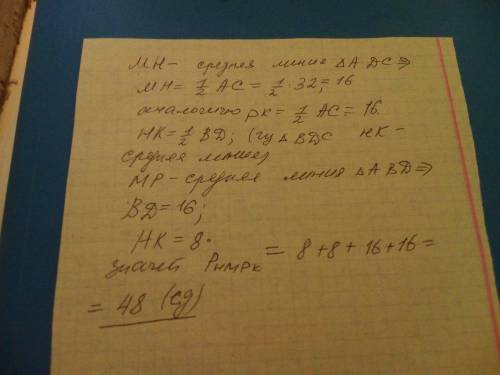 МН- средняя линия △ADC ⇒
МН = 1/2 АС = 1/2 · 32 = 16
аналогично РК = 1/2 АС = 16.
НК = 1/2 BD; ( △BDC НК -
средняя линия)
МР - средняя линия △ABD ⇒
BD = 16;
НК = 8.
значит Рнмрк = 8 + 8 + 16 + 16 =
= 48 (ед)